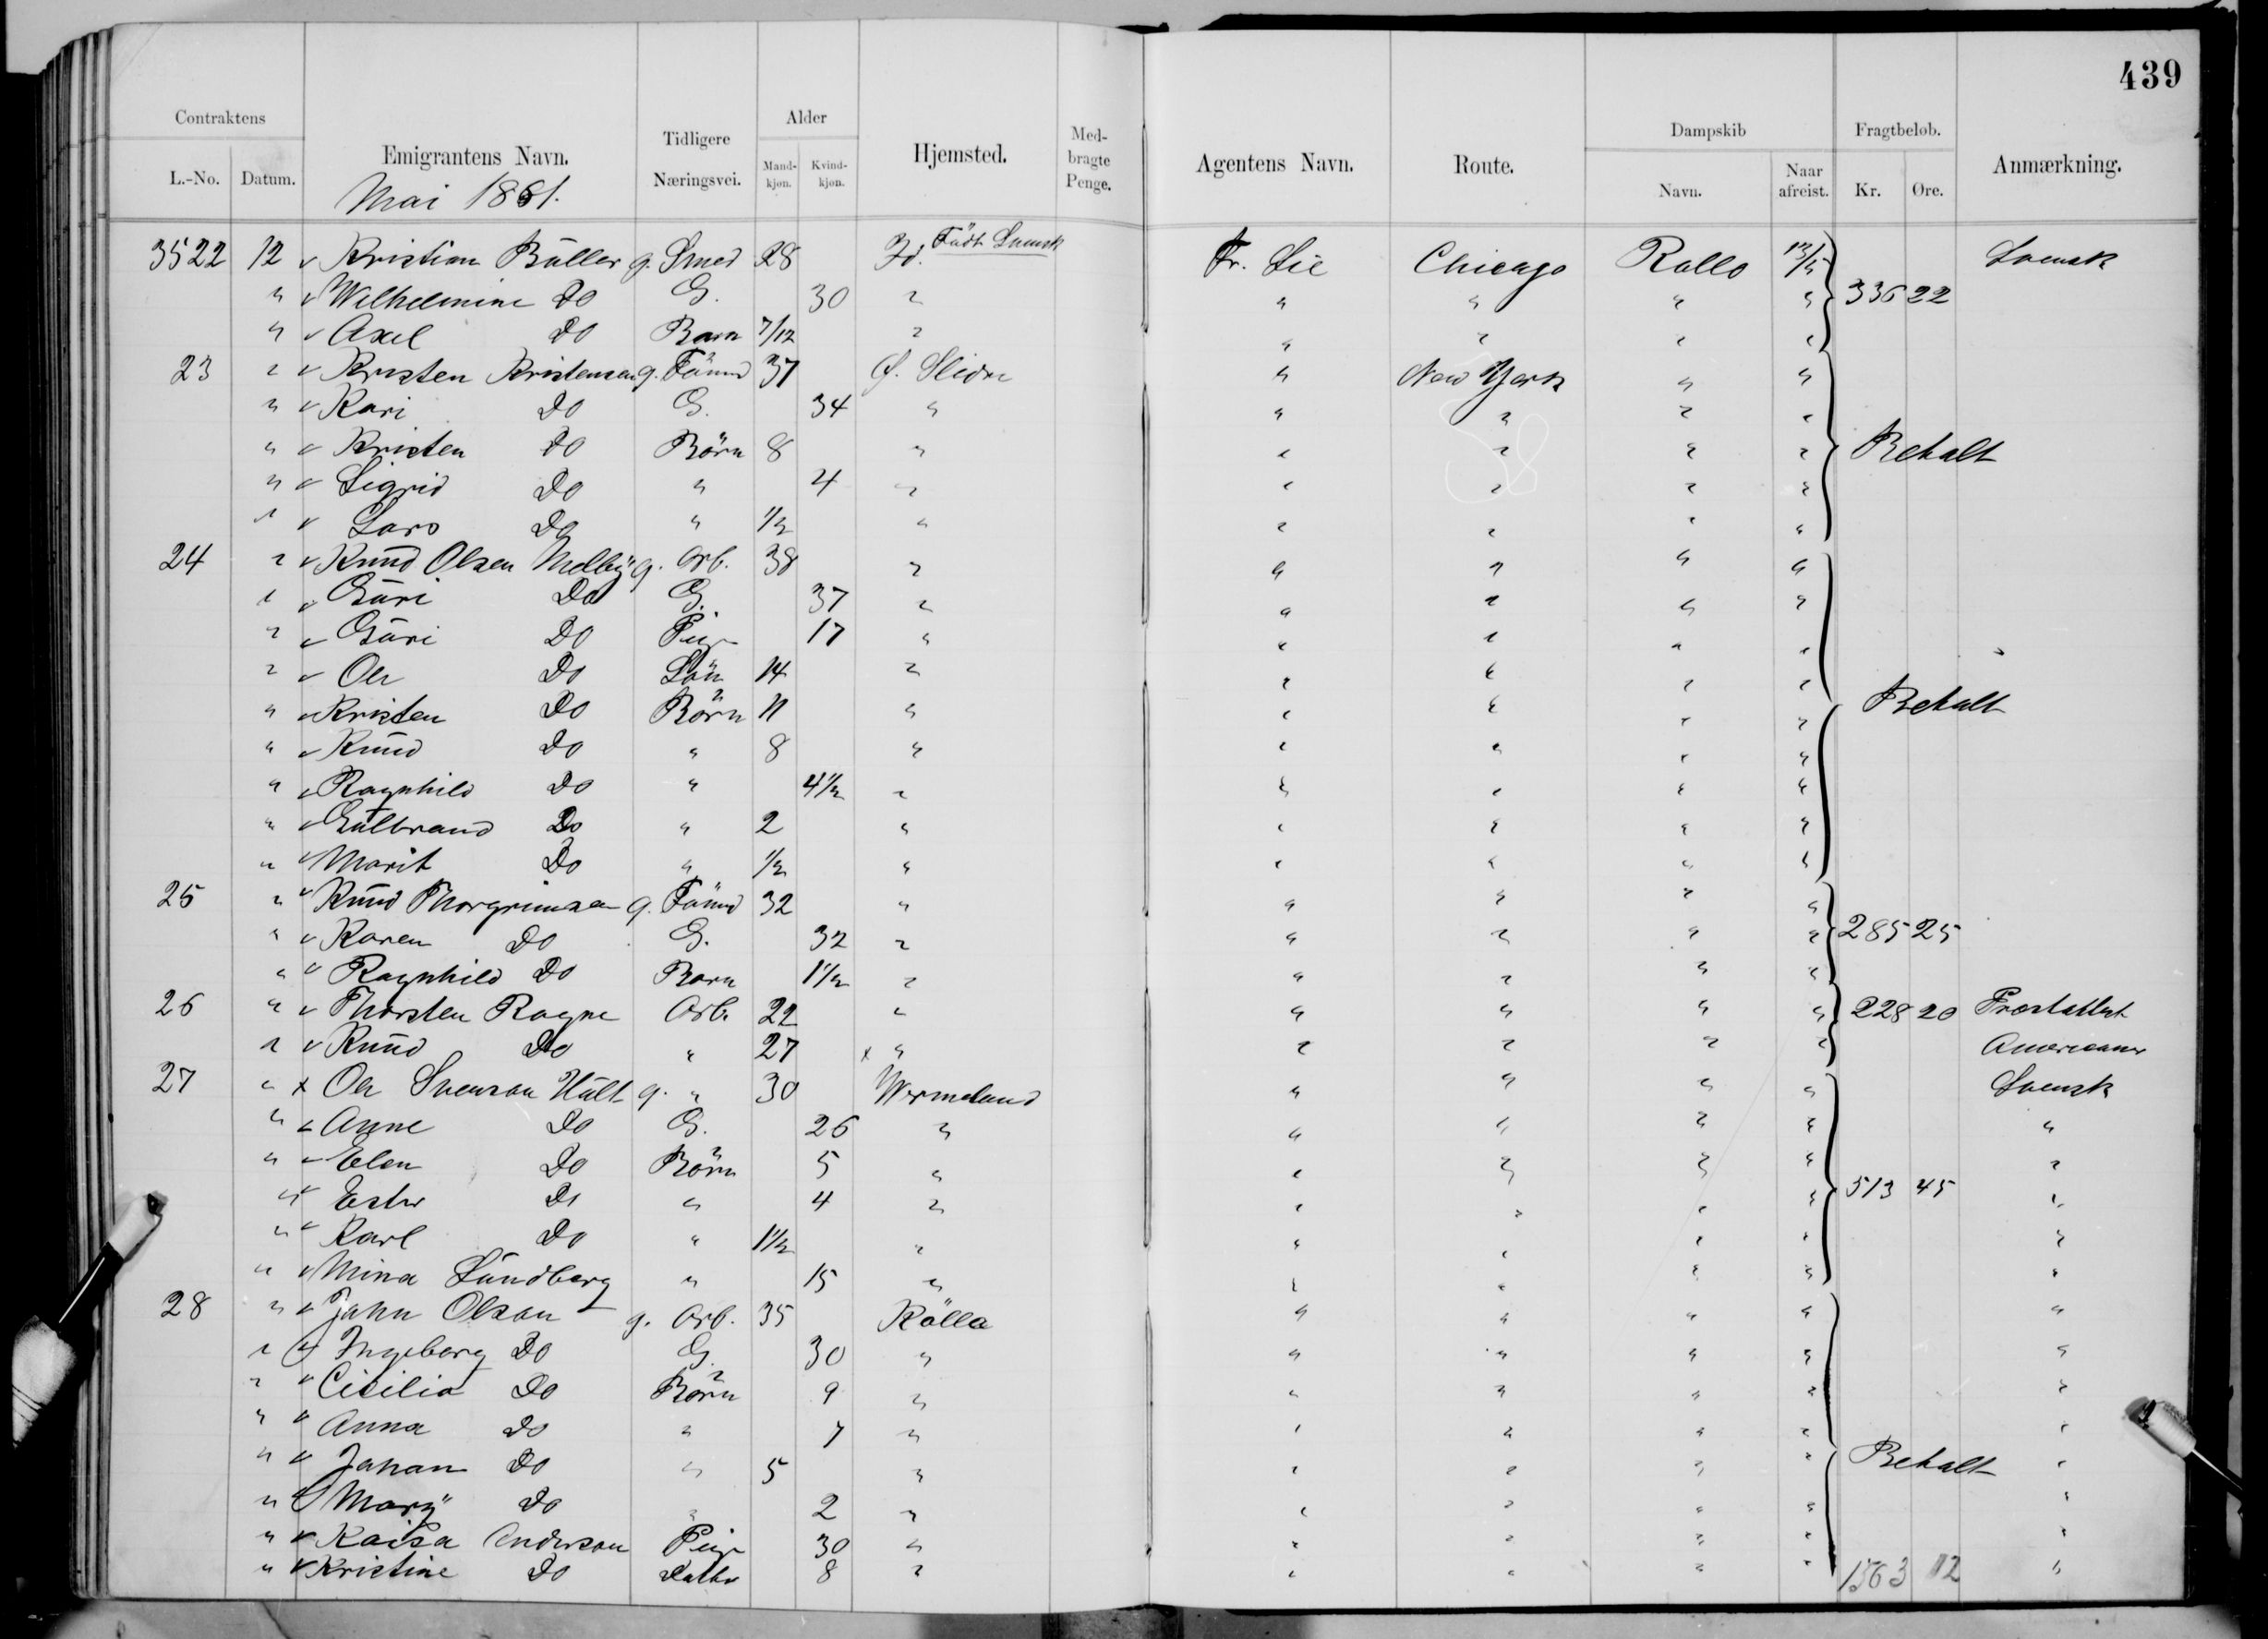 439
Contraktens
L.-No. Datum. Emigrantens Navn. Tidligere Næringsvei. Alder Mand-kjøn. Kvind-kjøn. Hjemsted. Med-bragte Penge. Agentens Navn. Route. Dampskib Navn. Naar afreist. Fragtbeløb. Kr. Øre. Anmærkning.
Mai 1881.
3522 12 Kristian Büller g. Smed 28 Födt Svensk Fr. Lie Chicago Rollo 13/5 Svensk
" Wilhelmine Do G. 30 " " " " " 336 22
" Axel Do Barn 7/12 " " " " "
23 " Kristen Kristensen g. Fömd 37 Ø. Slidre " New York " "
" Kari Do G. 34 " " " " "
" Kristen Do Börn 8 " " " " " Betalt
" Sigrid Do " 4 " " " " "
" Lars Do " 1/2 " " " " "
24 " Knud Olsen Melby g. Arb. 38 " " " " "
" Guri Do G. 37 " " " " "
" Guri Do Pige 17 " " " " "
" Ole Do Sön 14 " " " " "
" Kristen Do Börn 11 " " " " " Betalt
" Knud Do " 8 " " " " "
" Ragnhild Do " 4 1/2 " " " " "
" Gulbrand Do " 2 " " " " "
" Marit Do " 1/2 " " " " "
25 " Knud Thorgrimsen g. Fömd 32 " " " " "
" Karen Do G. 32 " " " " " 285 25
" Ragnhild Do Barn 1 1/2 " " " " "
26 " Thorsten Rogne Arb. 22 " " " " " 228 20
" Knud Do " 27 x " " " " " Americaner
27 " x Ole Svenson Hult g. " 30 Wermeland " " " " Svensk
" Anne Do G. 26 " " " " " "
" Elen Do Börn 5 " " " " " "
" Ester Do " 4 " " " " " 513 45 "
" Karl Do " 1 1/2 " " " " " "
" Mina Lundberg " 15 " " " " " "
28 " John Olson g. Arb. 35 Kölla " " " " "
" Ingeborg Do G. 30 " " " " " "
" Cicilia Do Börn 9 " " " " " "
" Anna Do " 7 " " " " " "
" Johan Do " 5 " " " " " Betalt "
" Mary Do " 2 " " " " " "
" Kaisa Anderson Pige 30 " " " " " "
" Kristine Do Datter 8 " " " " " 1363 12 "